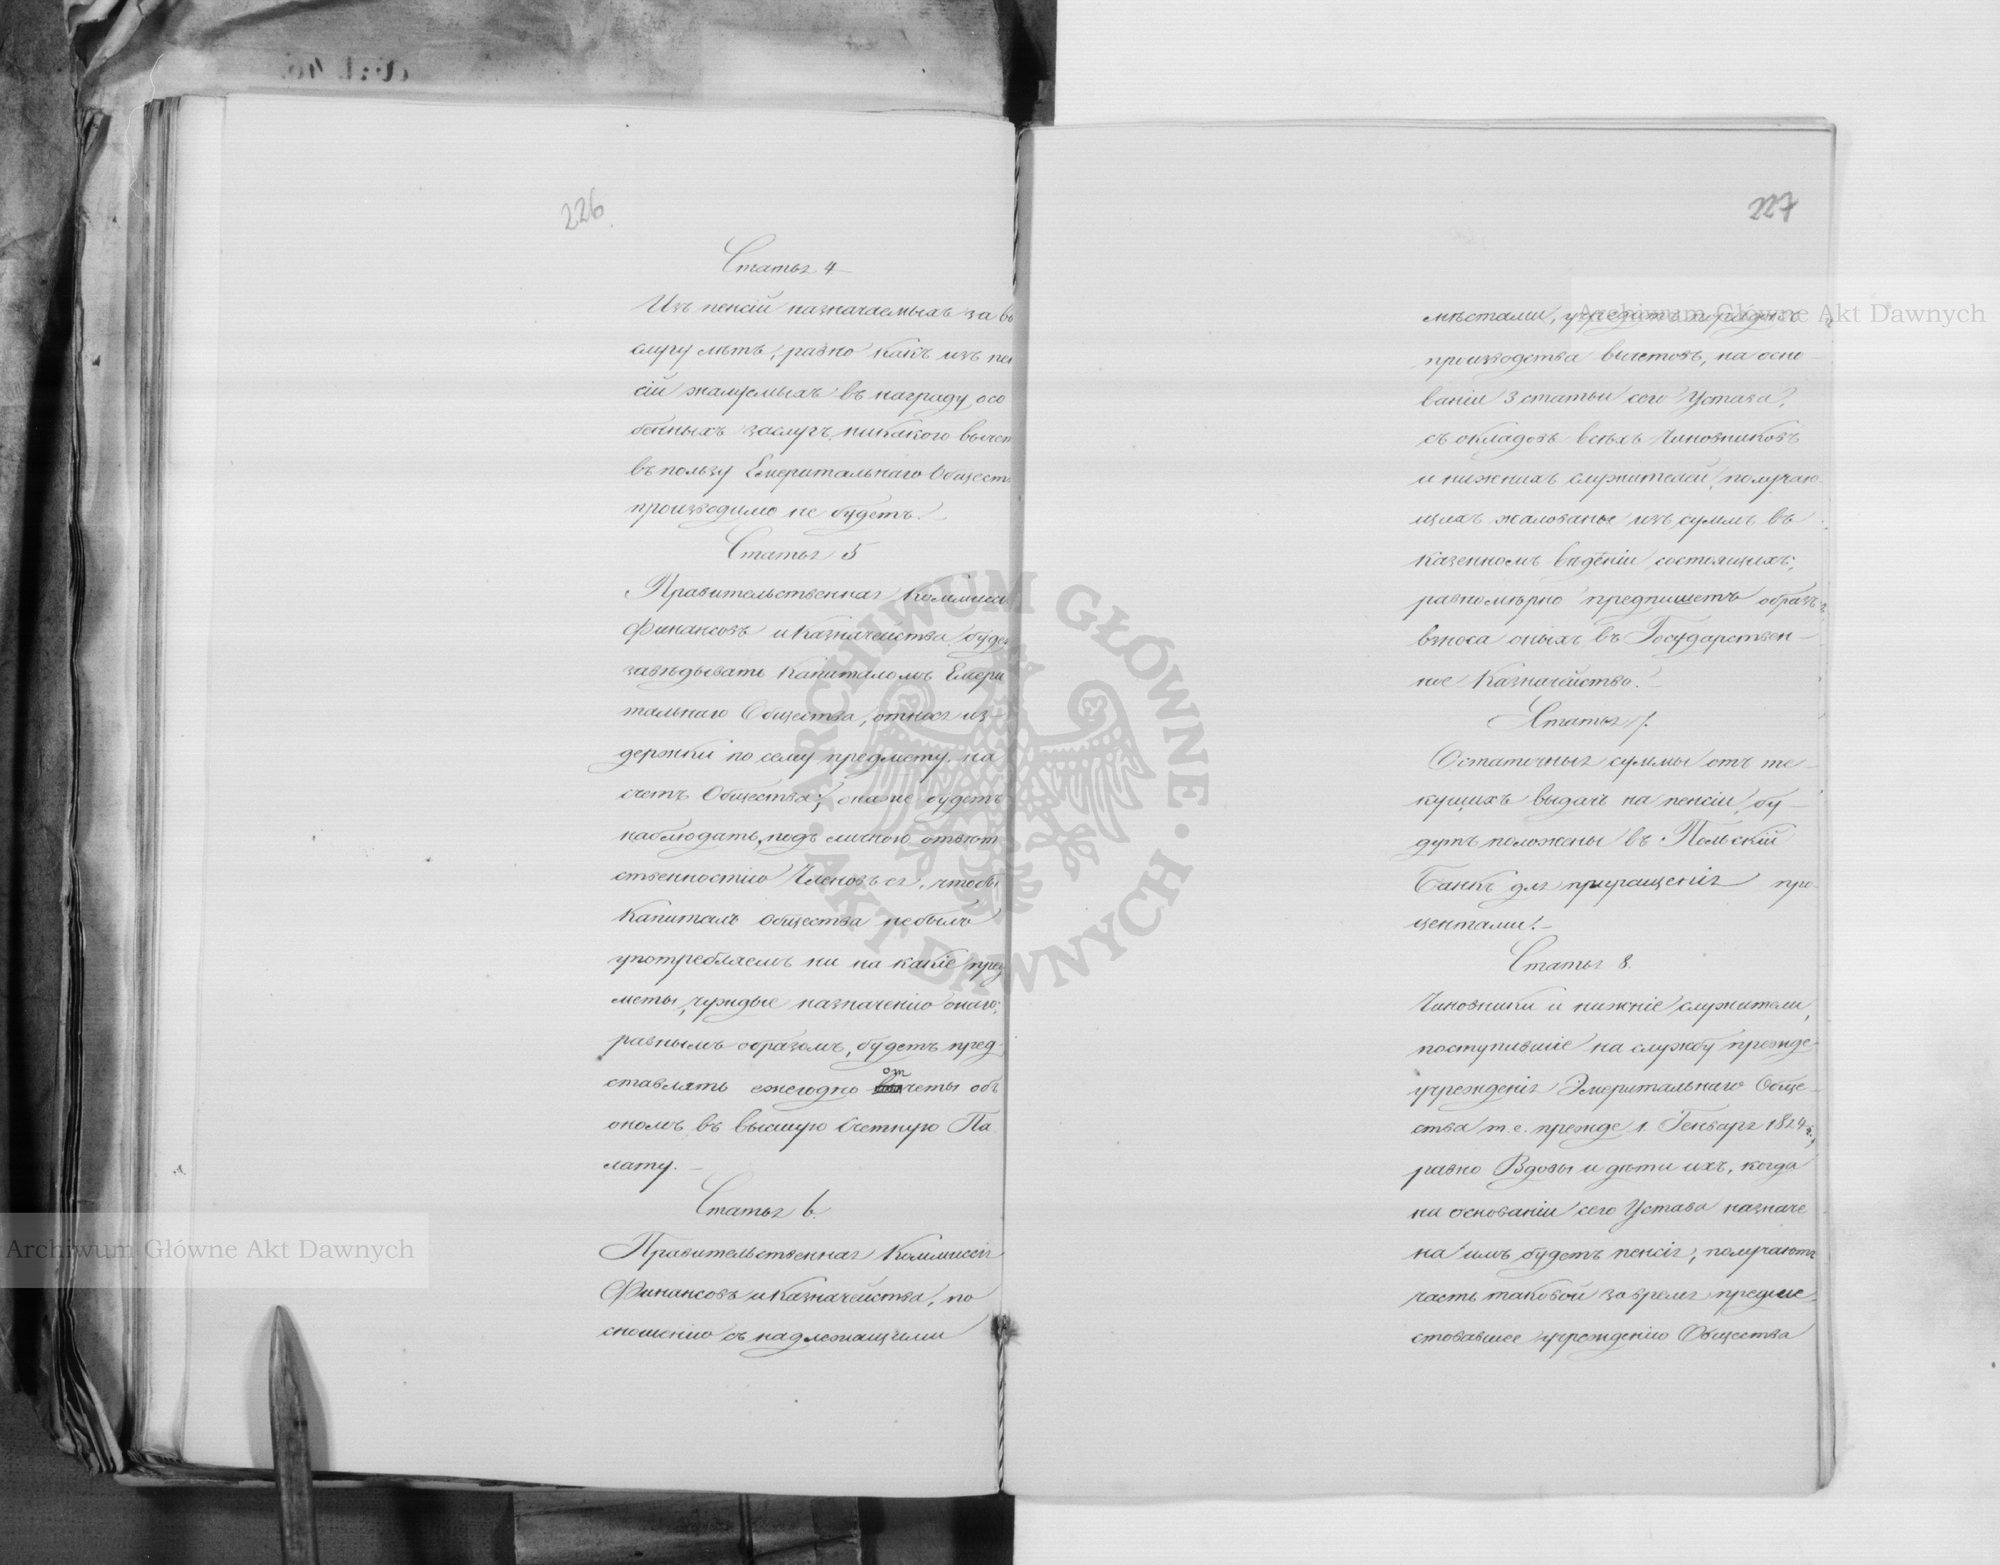 226.
Статья 4
Изъ пенсій назначаемыхъ за вы
слугу лѣтъ, равно какъ изъ пен
сій жалуемыхъ въ награду осо
бенныхъ заслугъ, никакого вычет
въ пользу Емеритальнаго Обществ
производимо не будетъ.
Статья 5
Правительственная Коммисс
Финансовъ и Казначейства будет
завѣдывать Капиталомъ Емери
тальнаго Общества, относя из-
держки по сему предмету на
счетъ Общества; она же будетъ
наблюдать, подъ личною отвѣт
ственностію Членовъ ея, чтобы
Капиталъ Общества не былъ
употребляемъ ни на какіе пред
меты, чуждые назначенію онаго;
равнымъ образомъ, будетъ пред-
ставлять ежегодно отчеты объ
ономъ въ высшую Счетную Па
лату. —
Статья 6.
Правительственная Коммиссія
Финансовъ и Казначейства, по
сношенію съ надлежащими
227
мѣстами, учредитъ порядокъ
производства вычетовъ, на осно
ваніи 3 статьи сего Устава,
съ окладовъ всѣхъ Чиновниковъ
и нижнихъ служителей, получаю-
щихъ жалованье изъ суммъ въ
казенномъ вѣденіи состоящихъ;
равномѣрно предпишетъ образъ
взноса оныхъ въ Государствен-
ное Казначейство. —
Статья 7.
Остаточныя суммы отъ те-
кущихъ выдачъ на пенсіи, бу-
дутъ положены въ Польскій
Банкъ для приращенія про-
центами. —
Статья 8.
Чиновники и нижніе служители,
поступившіе на службу прежде
учрежденія Эмеритальнаго Обще-
ства т. е. прежде 1. Генваря 1824 г.,
равно Вдовы и дѣти ихъ, когда
на основаніи сего Устава назначе
на имъ будетъ пенсія, получаютъ
часть таковой за время предше-
ствовавшее учрежденію Общества
Archiwum Główne Akt Dawnych
Archiwum Główne Akt Dawnych
ARCHIWUM GŁÓWNE · AKT DAWNYCH ·